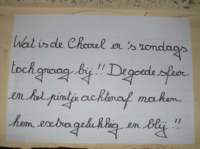 Wat is de Charel er 's zondags
toch graag bij!! De goede sfeer
en het pintje achteraf maken
hem extra gelukkig en blij!!